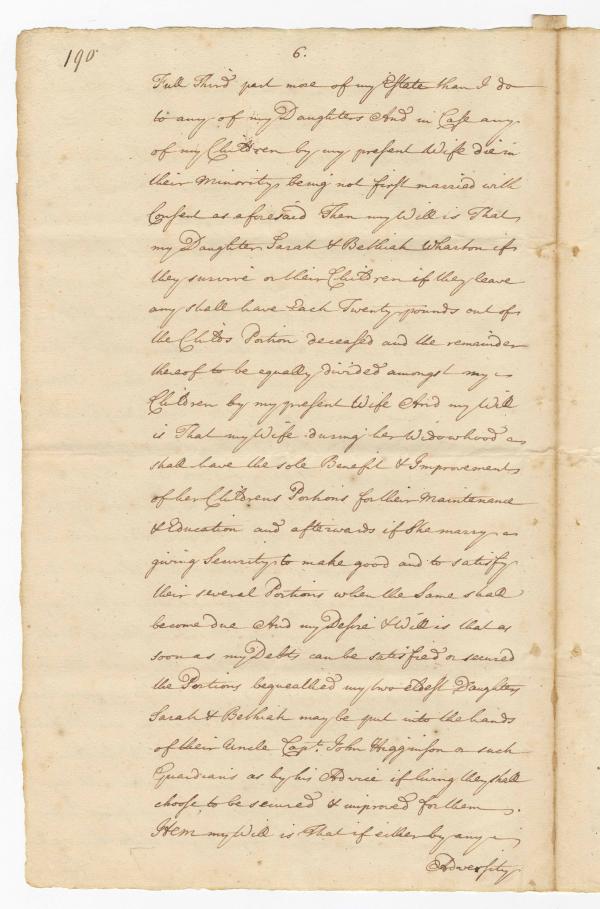 190
6.
Full Third part more of my Estate than I do
to any of my Daughters And in Case any
of my Children by my present Wife die in
their Minority being not first married with
Consent as aforesaid Then my Will is That
my Daughters Sarah & Bethiah Wharton if
they survive or their Children if they leave
any shall have Each Twenty pounds out of
the Childs Portion deceased and the remainder
thereof to be equally divided amongst my
Children by my present Wife And my Will
is That my Wife during her Widowhood
shall have the sole Benefit & Improvement
of her Childrens Portions for their Maintenence
& Education and afterwards if She marry
giving Security to make good and to satisfy
their several Portions when the Same shall
become due And my Desire & Will is that as
soon as my Debts can be satisfied or secured
the Portions bequeathed my two eldest Daughters
Sarah & Bethiah may be put into the hands
of their Uncle Capt. John Higginson or such
Guardians as by his Advice if living they shall
choose to be secured & improved for them.
Item my Will is That if either by any
Adversity